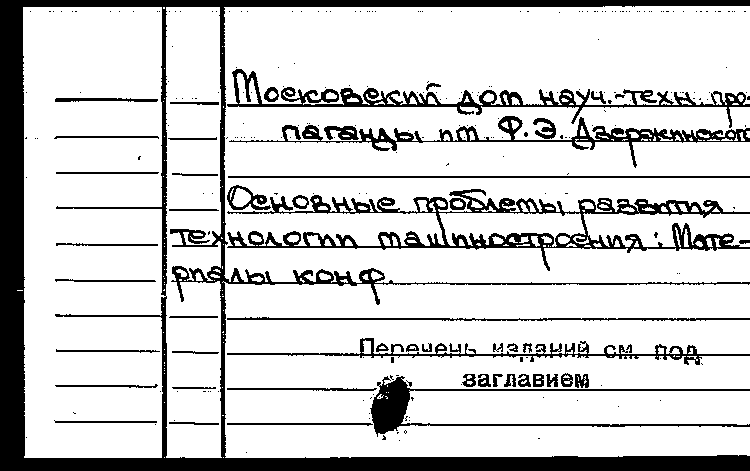 Московский дом науч.-техн. про-
паганды им. Ф.Э. Дзержинского
Основные проблемы развития
технологии машиностроения: Мате-
риалы конф.
Перечень изданий см. под
заглавием